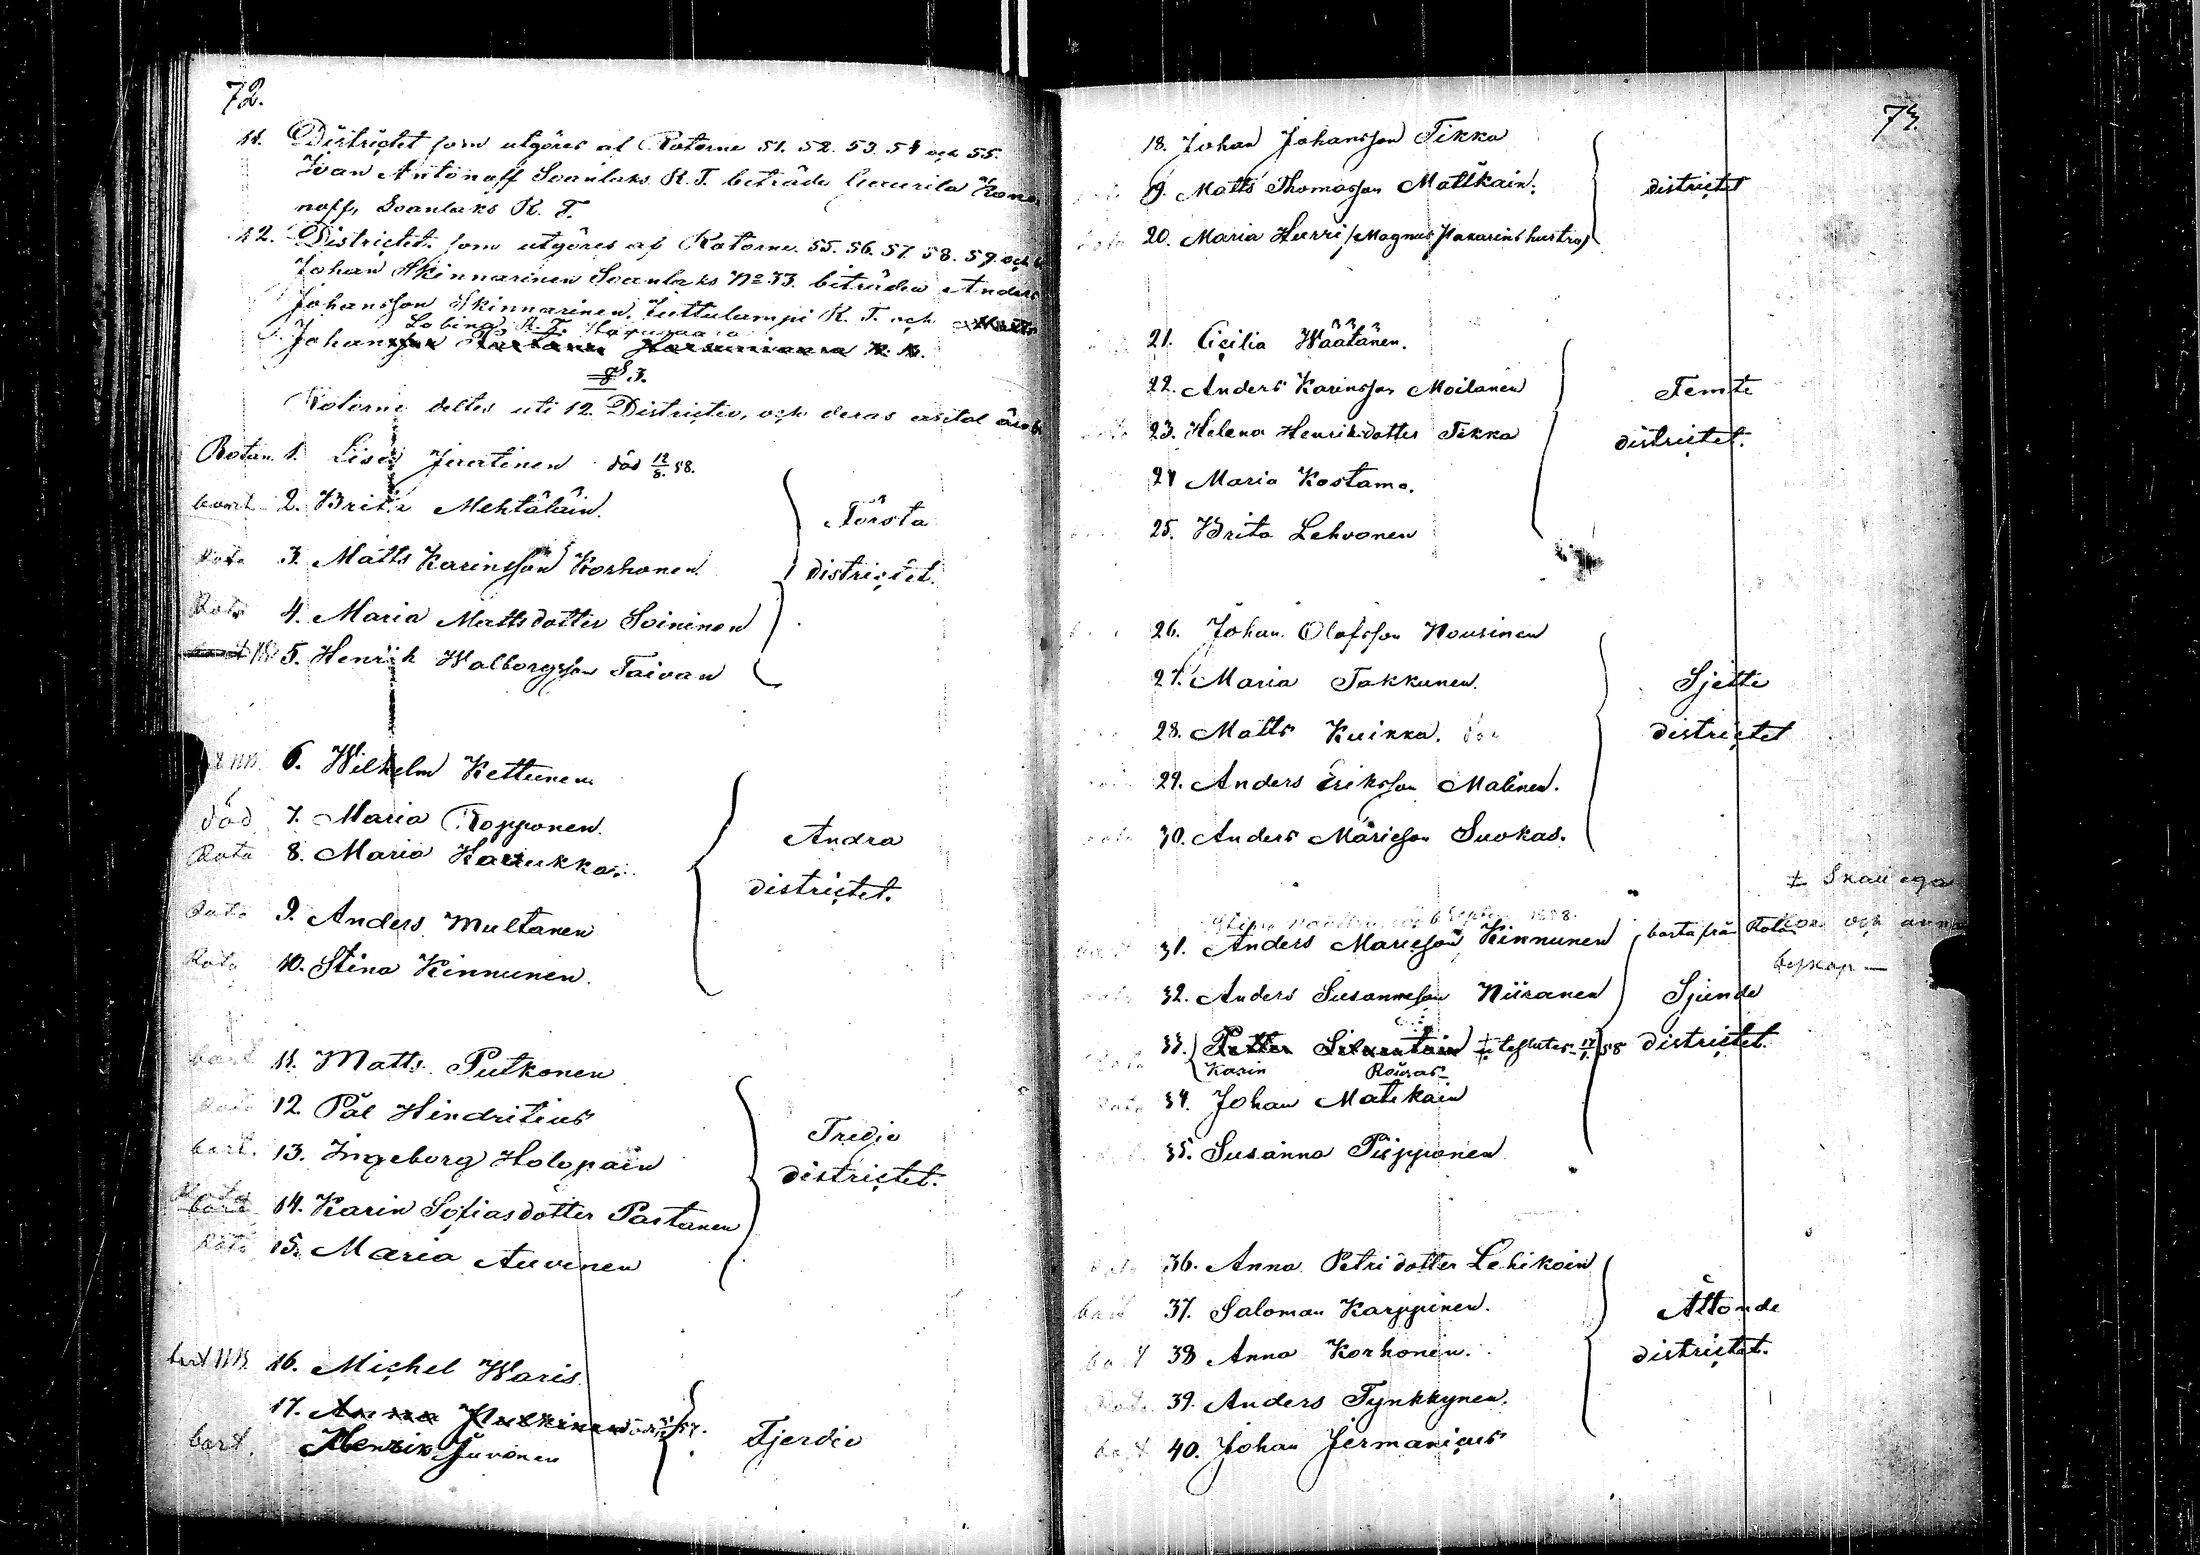 72.
11. Districtet som utgöres af Rotorne 51. 52. 53. 54 och 55.
Ivan Antonoff Soanlaks R. T. biträde Gavrila
noff, Soanlaks R. T.
12. Districtet som utgöres af Rotorne 55. 56. 57. 58. 59. och
Johan Skinnarinen Soanlaks No 33. biträden Anders
Johansson Skinnarinen, R. T. och
Johansson
§ 3.
Rotorne deltes uti 12 Districter, och deras antal äro
Rotan 1. Lisa Juutinen död 12/8 58.
bort 2. Brita Mehtäläin.
Rota 3. Matts Karinsson Korhonen.
Rota 4. Maria Mattsdotter Soininen
5. Henrik Walborgsson Taivan
Första
districtet.
6. Wilhelm Kettunen
död 7. Maria Ropponen.
Rota 8. Maria Haukka
Rota 9. Anders Multanen
Rota 10. Stina Kinnunen.
Andra
districtet.
bort 11. Matts Putkonen
Rota 12. Pål Hindritius
bort. 13. Ingeborg Holopain
Rota bort 14. Karin Sofiasdotter Partanen
Rota 15. Maria Auvinen
Tredje
districtet.
bort 16. Michel Waris.
17. Anna
bort. Henrik Juvonen
Fjerde
73.
18. Johan Johansson Tikka
19. Matts Thomasson Matikain.
Rota 20. Maria Hurri /Magnus Pakarins hustru/
districtet
21. Cicilia Wäätänen.
22. Anders Karinsson Moilanen
23. Helena Henriksdotter Tikka
24 Maria Kostamo.
25. Brita Lehvonen
Femte
districtet.
26. Johan Olofsson Nousinen
27. Maria Takkunen.
28. Matts Kuikka.
29. Anders Eriksson Malinen.
Rota 30. Anders Mariæson Suokas.
Sjette
districtet
‡ Skall ega
Stina September 1858.
bort 31. Anders Mariæson Kinnunen borta från Rotan
Rota 32. Anders Susannæson Niiranen
33. Petter Silventoin 58
Karin
Rota 34. Johan Matikain
35. Susanna Piipponen
Sjunde
districtet.
Rota 36. Anna Petridotter Lehikoin
bort 37. Saloman Karppinen.
bort 38 Anna Korhonen.
Rota 39. Anders Tynkkynen.
bort 40. Johan Jermanicus
Åttonde
districtet.